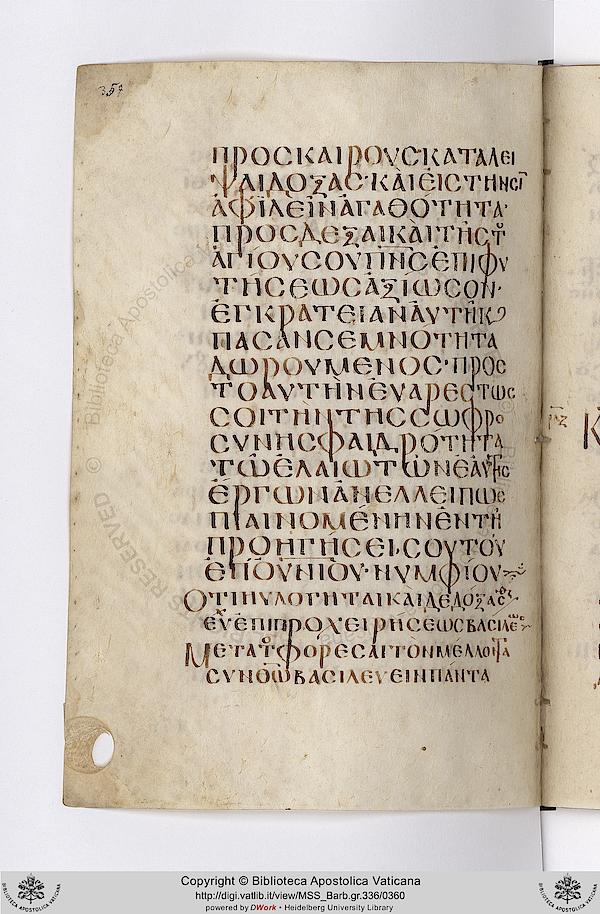 359
ΠΡΟΣΚΑΙΡΟΥΣ·ΚΑΤΑΛΕΙ
ΨΑΙΔΟΞΑΣ·ΚΑΙΕΙΣΤΗΝΣΗ
ΑΦΙΛΕΙΝΑΓΑΘΟΤΗΤΑ·
ΠΡΟΣΔΕΞΑΙΚΑΙΤΗΣΤΟΥ
ΑΓΙΟΥΣΟΥΠΝΣΕΠΙΦΥ
ΤΗΣΕΩΣΑΞΙΩΣΟΝ·
ΕΓΚΡΑΤΕΙΑΝΑΥΤΗΚ
ΠΑΣΑΝΣΕΜΝΟΤΗΤΑ
ΔΩΡΟΥΜΕΝΟΣ·ΠΡΟΣ
ΤΟΑΥΤΗΝΕΥΑΡΕΣΤΩΣ
ΣΟΙΤΗΝΤΗΣΣΩΦΡΟ
ΣΥΝΗΣΦΑΙΔΡΟΤΗΤΑ
ΤΩΕΛΑΙΩΤΩΝΕΑΥΤΗΣ
ΕΡΓΩΝΑΝΕΛΛΕΙΠΩΣ
ΠΙΑΙΝΟΜΕΝΗΝΕΝΤΗ
ΠΡΟΗΓΗΣΕΙ·ΣΟΥΤΟΥ
ΕΠΟΥΝΙΟΥ·ΝΥΜΦΙΟΥ
ΟΤΙΗΥΛΟΓΗΤΑΙΚΑΙΔΕΔΟΞΑΣ
ΕΥΕΠΙΠΡΟΧΕΙΡΗΣΕΩΣΒΑΣΙΛΕΩΣ
ΜΕΤΑΤΟΦΟΡΕΣΑΙΤΟΝΜΕΛΛΟΝΤΑ
ΣΥΝΟΩΒΑΣΙΛΕΥΕΙΝΠΑΝΤΑ
Copyright © Biblioteca Apostolica Vaticana
http://digi.vatlib.it/view/MSS_Barb.gr.336/0360
powered by DWork - Heidelberg University Library